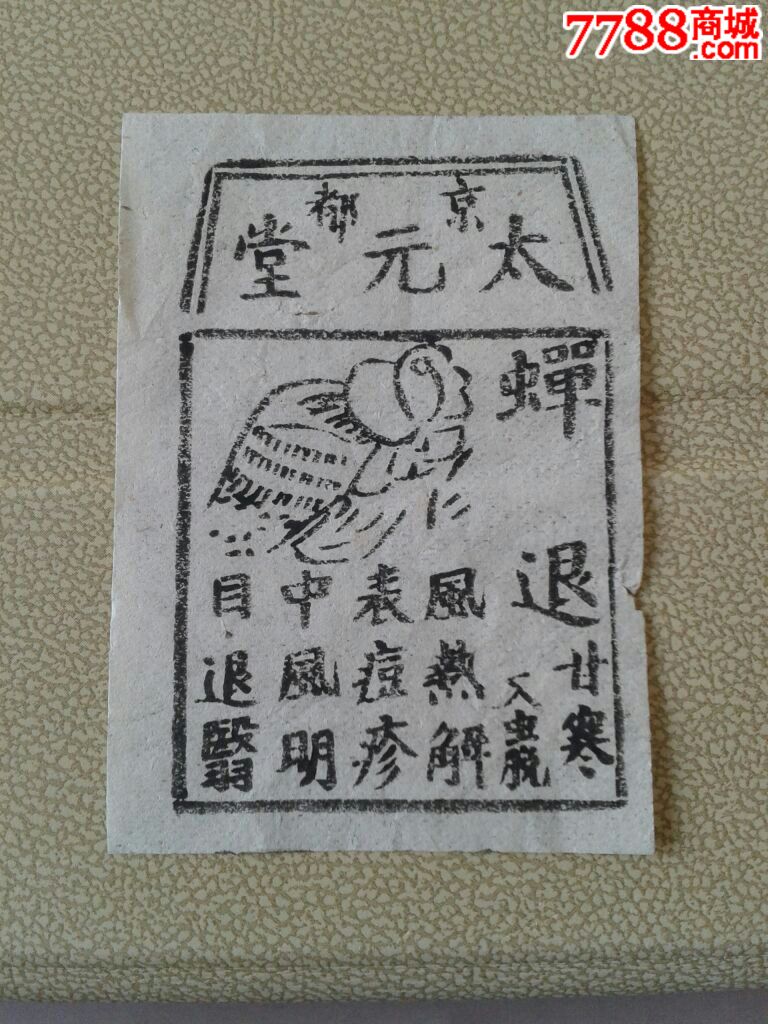 7788商城
.com
京都
太元堂
蟬退
甘寒
入
風熱解
表痘疹
中風明
目退翳